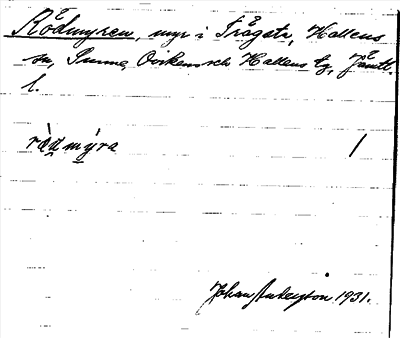 Rödmyren, myr i Trågsta, Hallens
sn, Sunne, Oviken och Hallens tg, Jämtl.
l.
rö̀dmýra 1
Johan Anderson 1931.